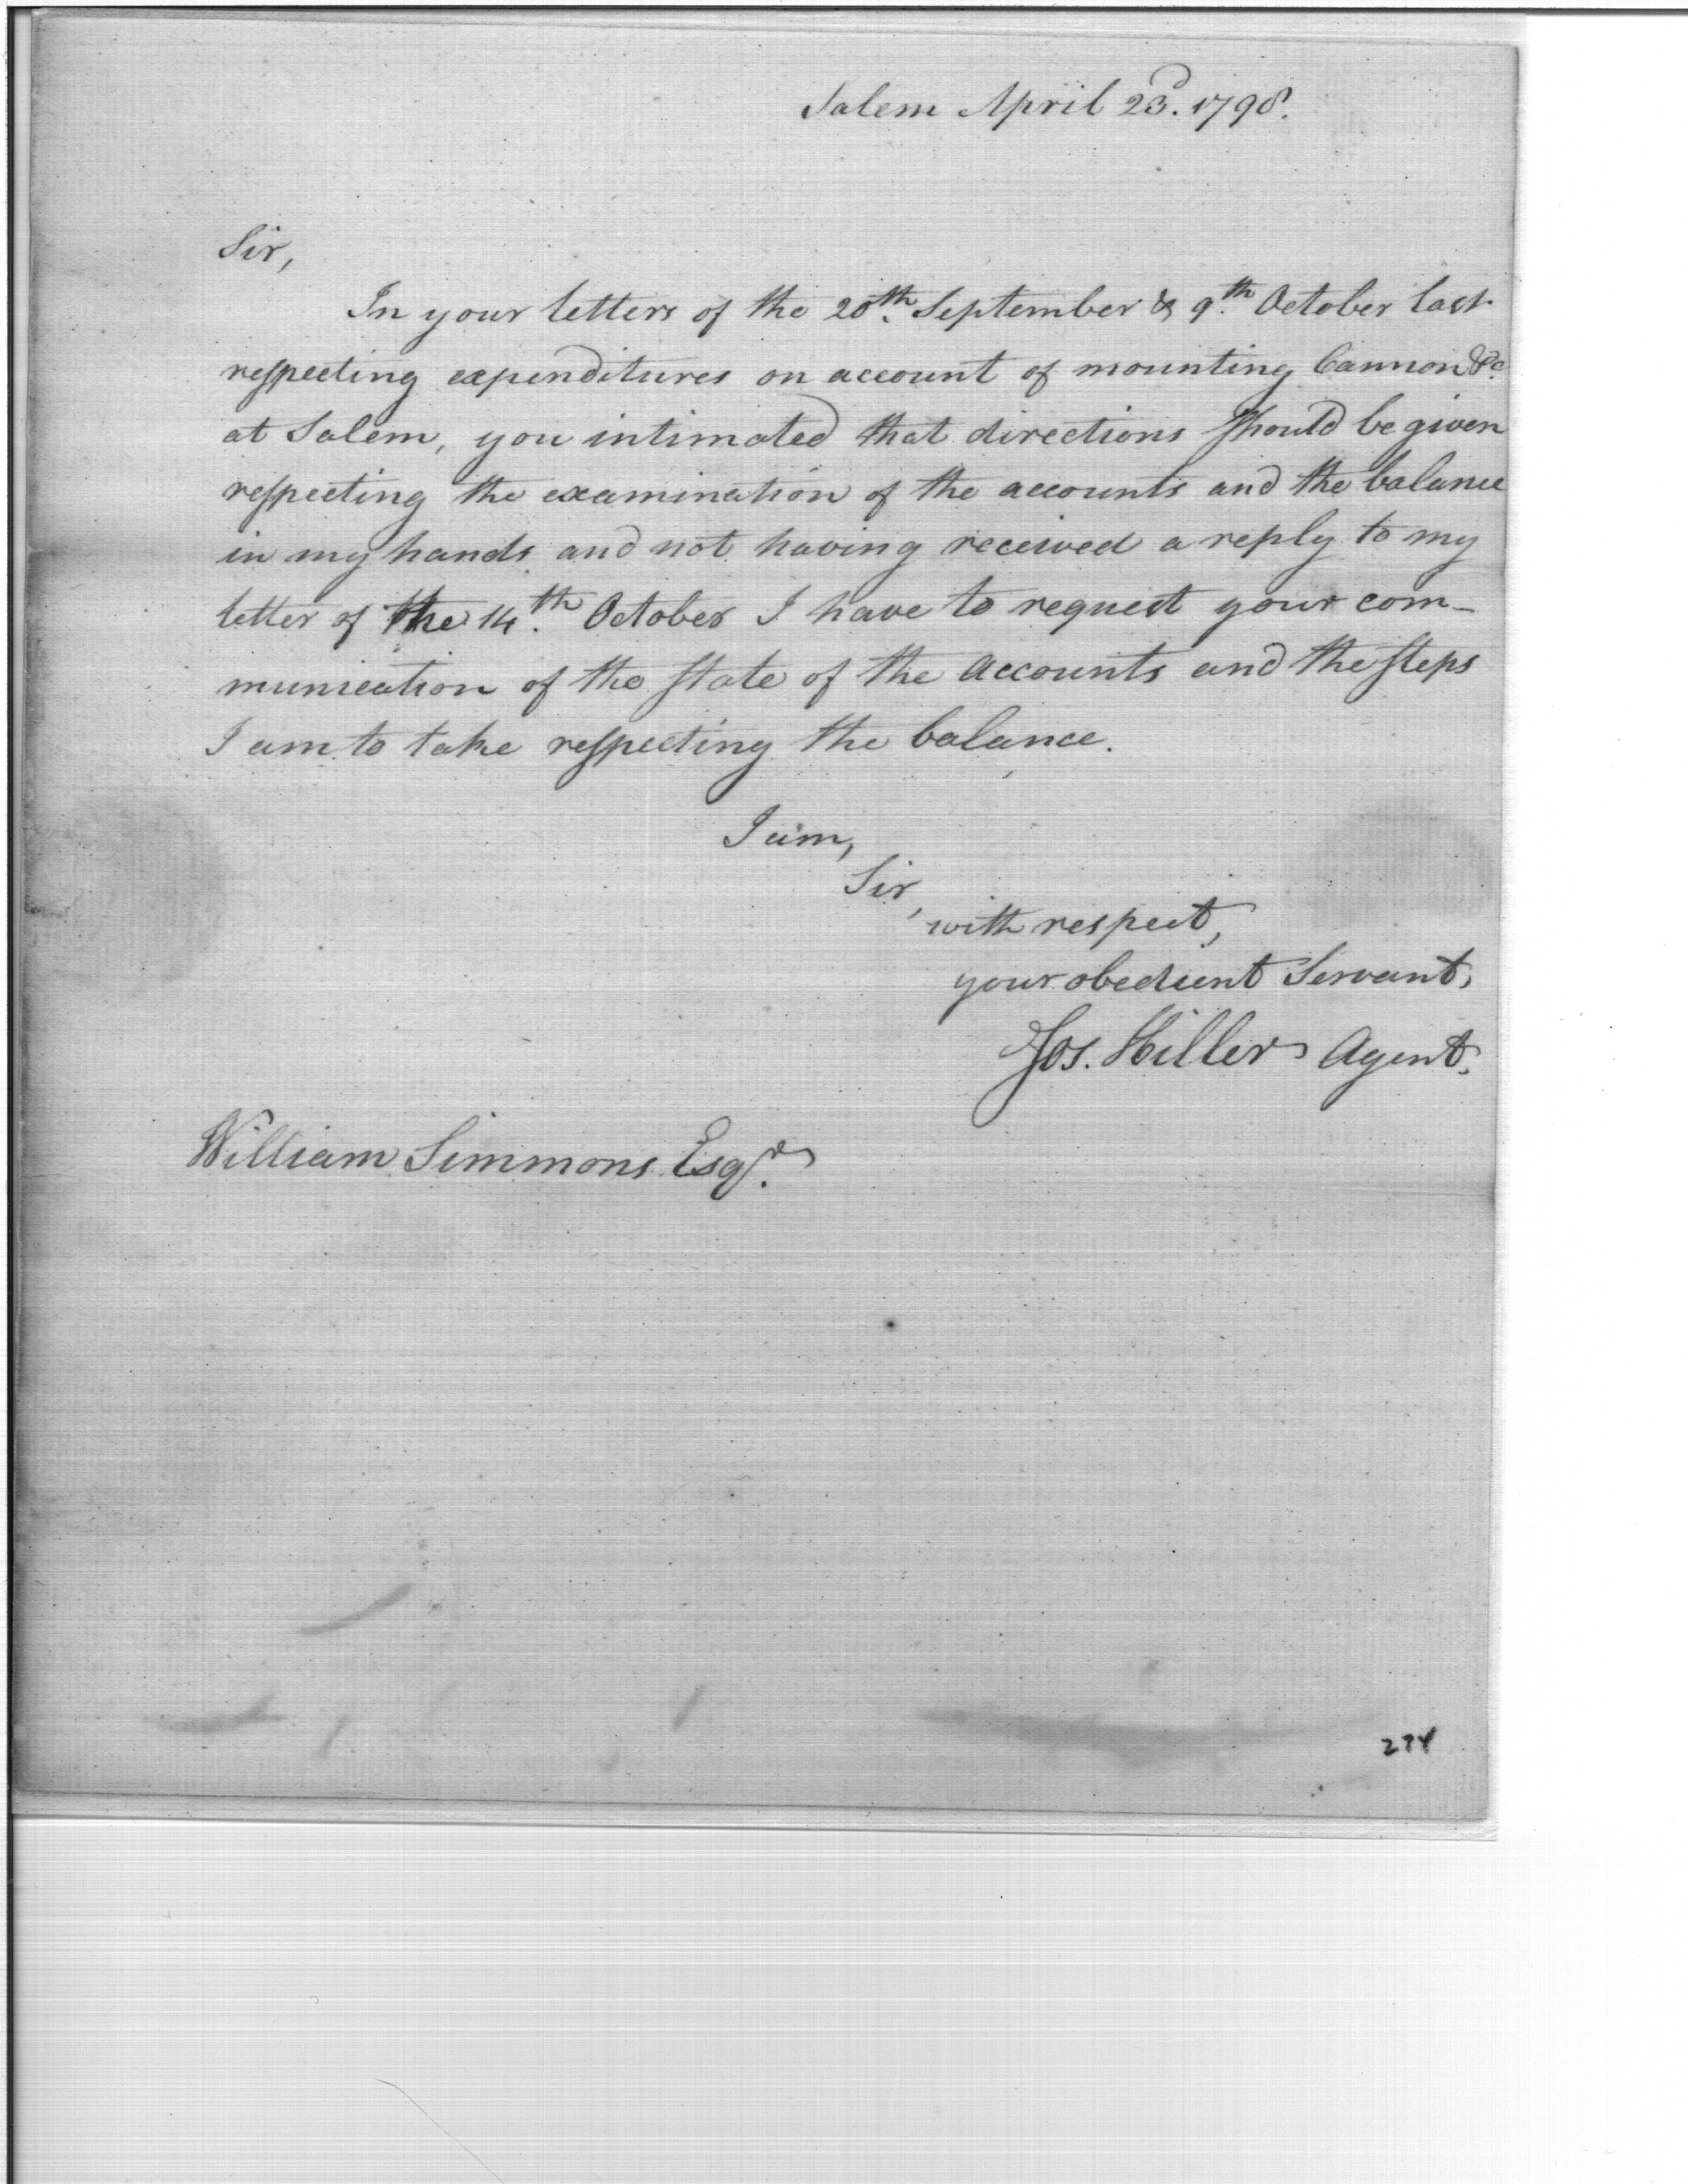 Salem April 23d. 1798.
Sir,
In your letters of the 20th. September & 9th. October last
respecting expenditures on account of mounting Cannon &c
at Salem, you intimated that directions should be given
respecting the examination of the accounts and the balance
in my hands and not having received a reply to my
letter of the 14th. October I have to request your com-
munication of the state of the accounts and the steps
I am to take respecting the balance.
I am,
Sir,
with respect,
your obedient Servant,
Jos. Hiller Agent.
William Simmons Esqr.